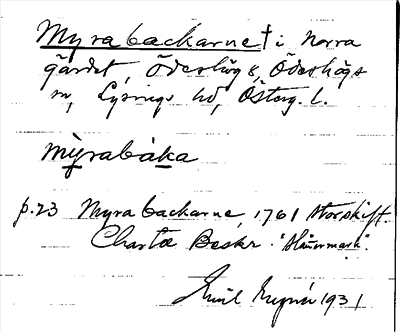 Myrabackarne † i Norra
gärdet, Ödeshög 8, Ödeshögs
sn, Lysings hd, Österg. l.
myrabàka
p. 23 Myrabackarne, 1761 Storskift.
Charta Beskr.
Emil 1931